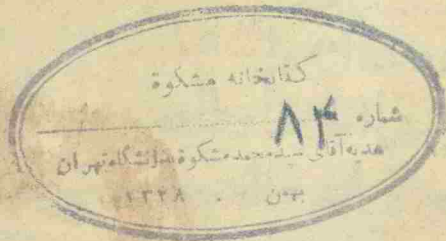 کتابخانه مشکوة
شماره ۸۴
هدیه آقای سید محمد مشکوة بدانشگاه تهران
بهمن ۱۳۲۸